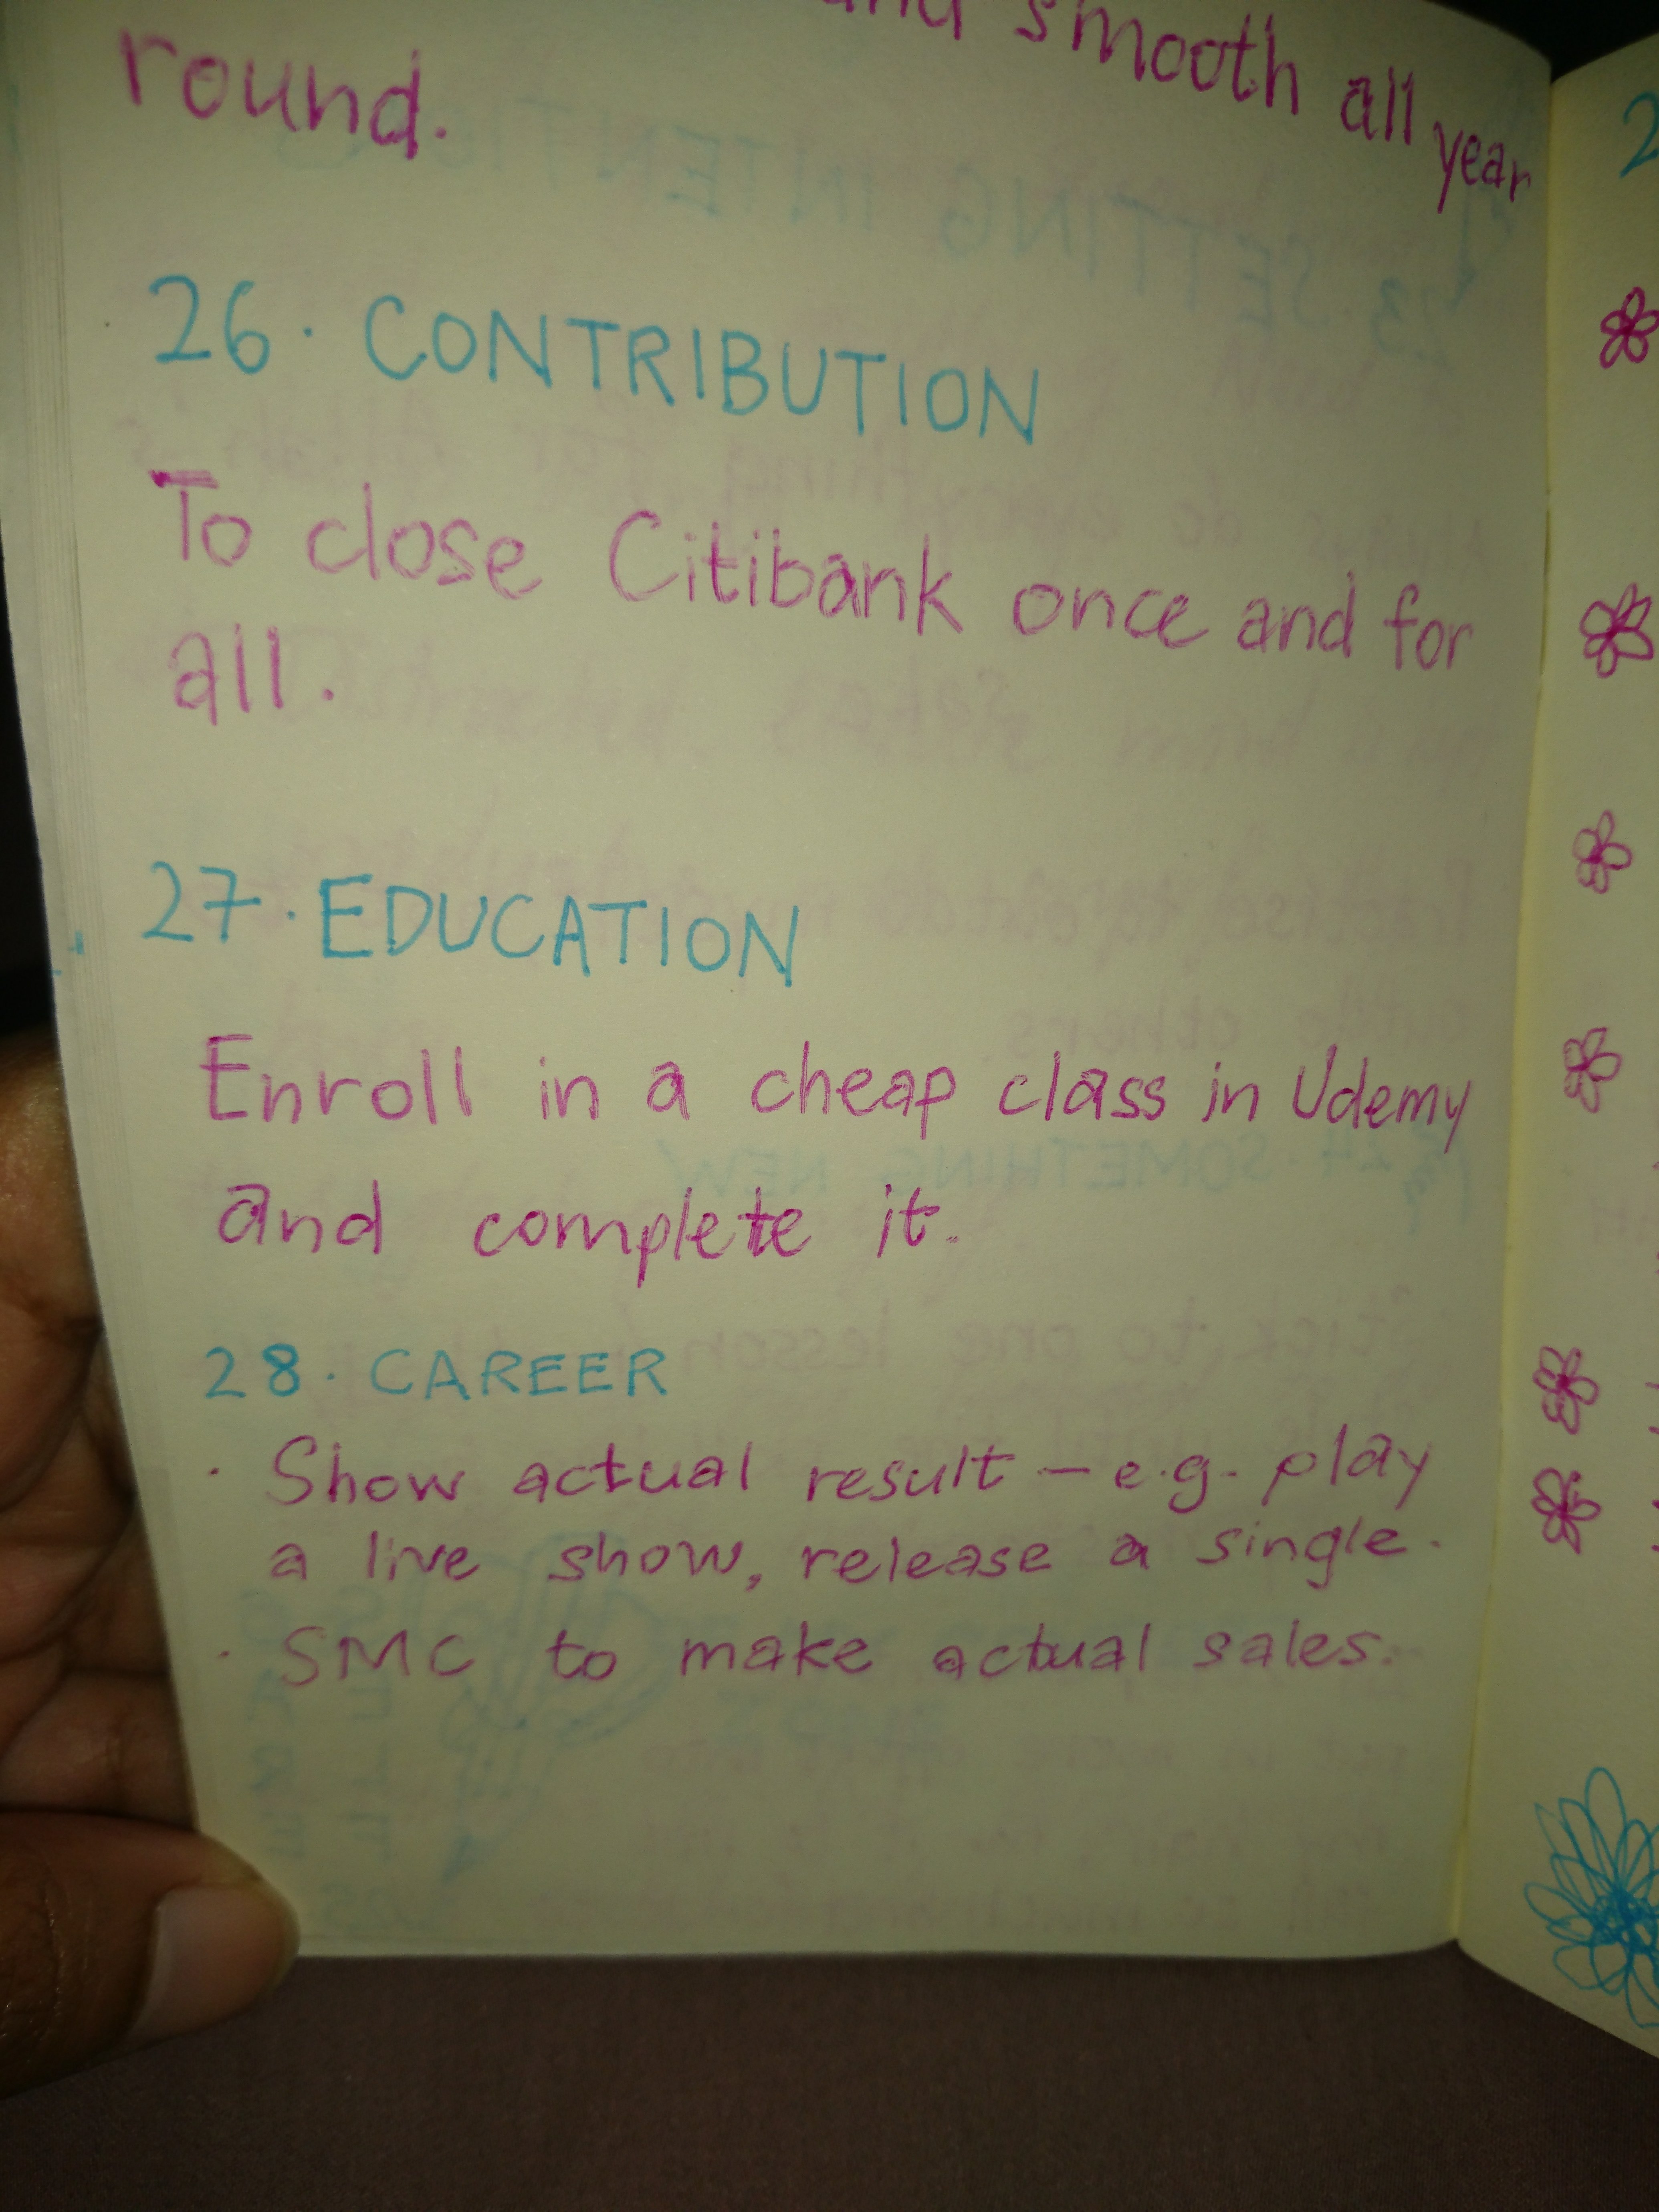 and smooth all year
round.
26. CONTRIBUTION
To close Citibank once and for
all.
27. EDUCATION
Enroll in a cheap class in Udemy
and complete it.
28. CAREER
· Show actual result - e.g. play
a live show, release a single.
· SMC to make actual sales.